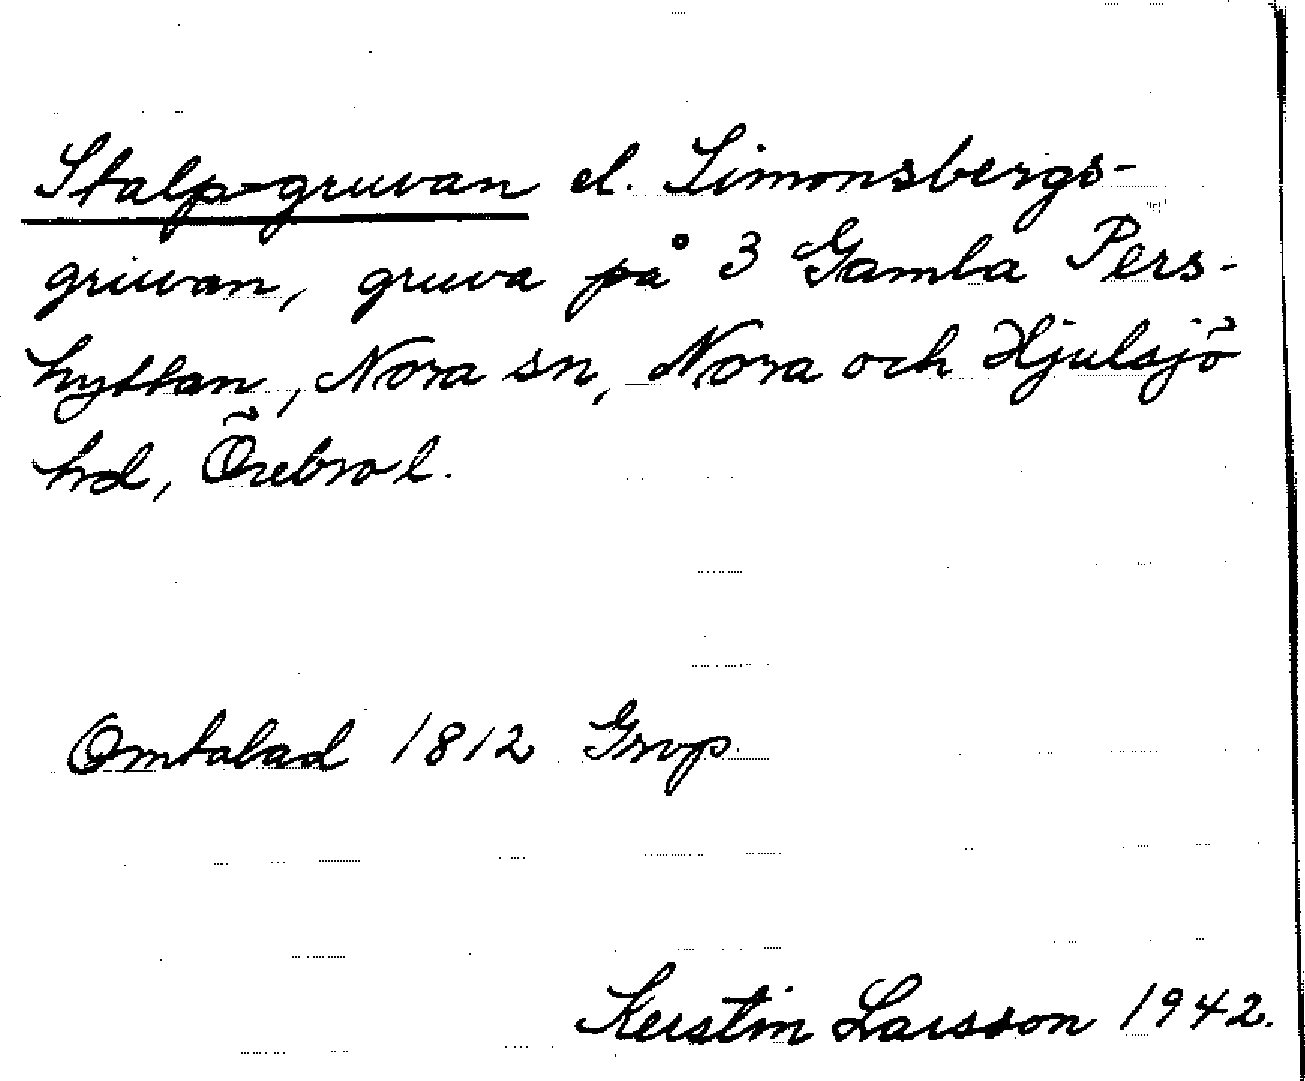 Stalp-gruvan el. Simonsbergs-
gruvan, gruva på 3 Gamla Pers-
hyttan, Nora sn, Nora och Hjulsjö
hrd, Örebro l.
Omtalad 1812 Grop
Kerstin Larsson 1942.